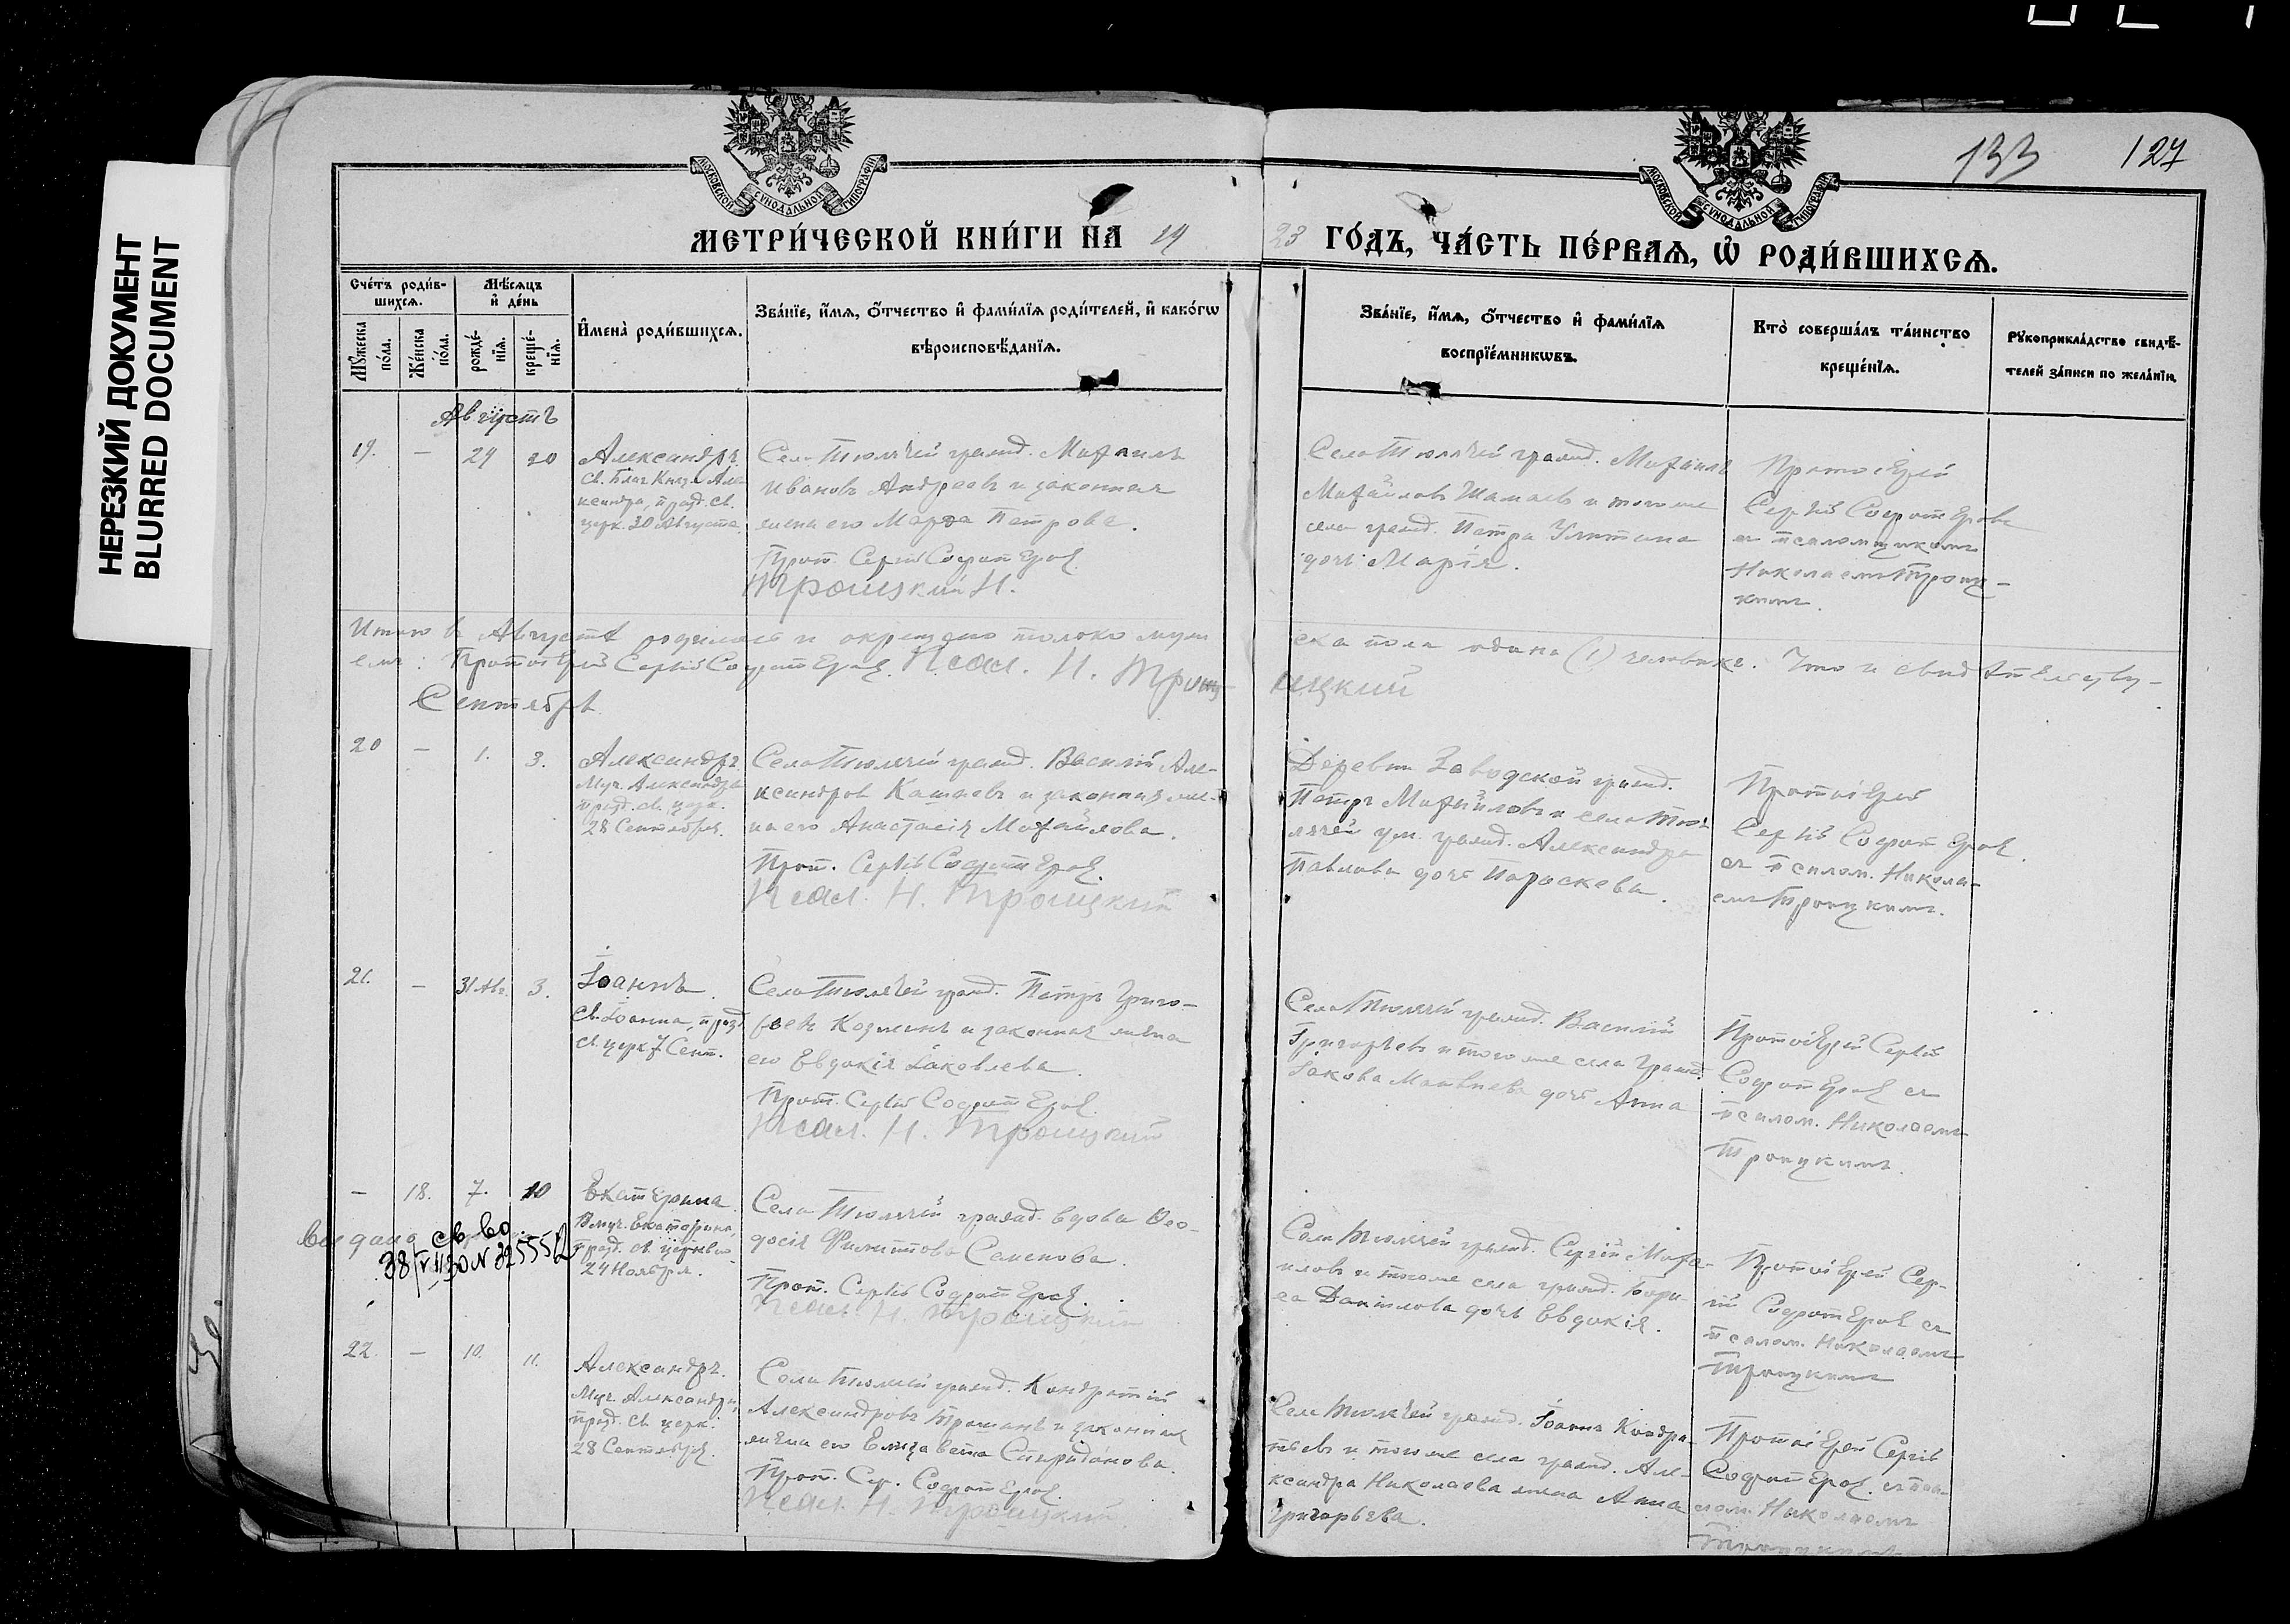 НЕРЕЗКИЙ ДОКУМЕНТ
BLURRED DOCUMENT
133 127
МОСКОВСКОЙ СУНОДАЛЬНОЙ ТИПОГРАФІИ
МОСКОВСКОЙ СУНОДАЛЬНОЙ ТИПОГРАФІИ
МЕТРИ́ЧЕСКОЙ КНИ́ГИ НА 19
23 ГО́ДЪ, ЧА́СТЬ ПЕ́РВАѦ, Ѡ҆ РОДИ́ВШИХСѦ.
Сче́тъ роди́в-
шихсѧ.
Мѣ́сѧцъ
и҆ де́нь
Мꙋ́жеска
по́ла.
Же́нска
по́ла.
рожде́-
нїѧ.
креще́-
нїѧ.
И҆мена̀ роди́вшихсѧ.
Зва́нїе, и҆́мѧ, ѻ҆́тчество и҆ фами́лїѧ роди́телей, и҆ како́гѡ
вѣроисповѣ́данїѧ.
Зва́нїе, и҆́мѧ, ѻ҆́тчество и҆ фами́лїѧ
воспрїе́мникѡвъ.
Кто̀ соверша́лъ та́инство
креще́нїѧ.
Рꙋкоприкла́дство свидѣ́-
телей за́писи по жела́нїю.
Августъ
19. — 29 20
Александръ
Св. Благ. Князя Але-
ксандра, празд. св.
церк. 30 Августа.
Села Тюлячей гражд. Михаилъ
Ивановъ Андреевъ и законная
жена его Марѳа Петрова.
Прот. Сергій Софотеровъ.
Троицкий Н.
Села Тюлячей гражд. Михаилъ
Михайловъ Шамаевъ и того же
села гражд. Петра
дочь Марія.
Протоіерей
Сергій Софотеровъ
съ псаломщикомъ
Николаемъ Троиц-
кимъ.
Итого въ Августѣ родилось и окрещено только муж
еска пола одинъ (1) человѣкъ. Что и свидѣтельству-
емъ: Протоіерей Сергій Софотеровъ. Псал. Н. Троиц-
ицкий
Сентябрь
20 — 1. 3.
Александръ
Муч. Александра
празд. св. церк.
28 Сентября.
Села Тюлячей гражд. Василій Але-
ксандровъ Кашаевъ и законная же-
на его Анастасія Михайлова.
Прот. Сергій Софотеровъ.
Псал. Н. Троицкий
Деревни Заводской гражд.
Петръ Михайловъ и села Тю-
лячей ум. гражд. Александра
Павлова дочь Параскева.
Протоіерей
Сергій Софотеровъ
съ псалом. Никола-
емъ Троицкимъ.
21. — 31 Авг. 3.
Іоаннъ
Св. Іоанна, празд.
св. церк. 7 Сент.
Села Тюлячей гражд. Петръ Григо-
рьевъ Козминъ и законная жена
его Евдокія Іаковлева.
Прот. Сергій Софотеровъ.
Псал. Н. Троицкий
Села Тюлячей гражд. Василій
Григорьевъ и того же села гражд.
Іакова Матвѣева дочь Анна
Протоіерей Сергій
Софотеровъ съ
псалом. Николаемъ
Троицкимъ.
— 18. 7. 10
Екатерина
Вмуч. Екатерины,
празд. св. церковію
24 Ноября.
Выдано св-во
Села Тюлячей гражд. вдова Ѳео-
досія Филиппова Семенова.
Прот. Сергій Софотеровъ.
Псал. Н. Троицкий
Села Тюлячей гражд. Сергій Миха-
иловъ и того же села гражд. Бори-
са Данилова дочь Евдокія.
Протоіерей Сер-
гій Софотеровъ съ
псалом. Николаемъ
Троицкимъ
22. — 10. 11.
Александръ.
Муч. Александра,
празд. св. церк.
28 Сентября.
Села Тюлячей гражд. Кондратій
Александровъ Трошинъ и законная
жена его Елизавета Спиридонова.
Прот. Сер. Софотеровъ
Псал. Н. Троицкий
Села Тюлячей гражд. Іоаннъ Кондра-
тьевъ и того же села гражд. Але-
ксандра Николаева жена Анна
Григорьева.
Протоіерей Сергій
Софотеровъ съ пса-
лом. Николаемъ
Троицкимъ